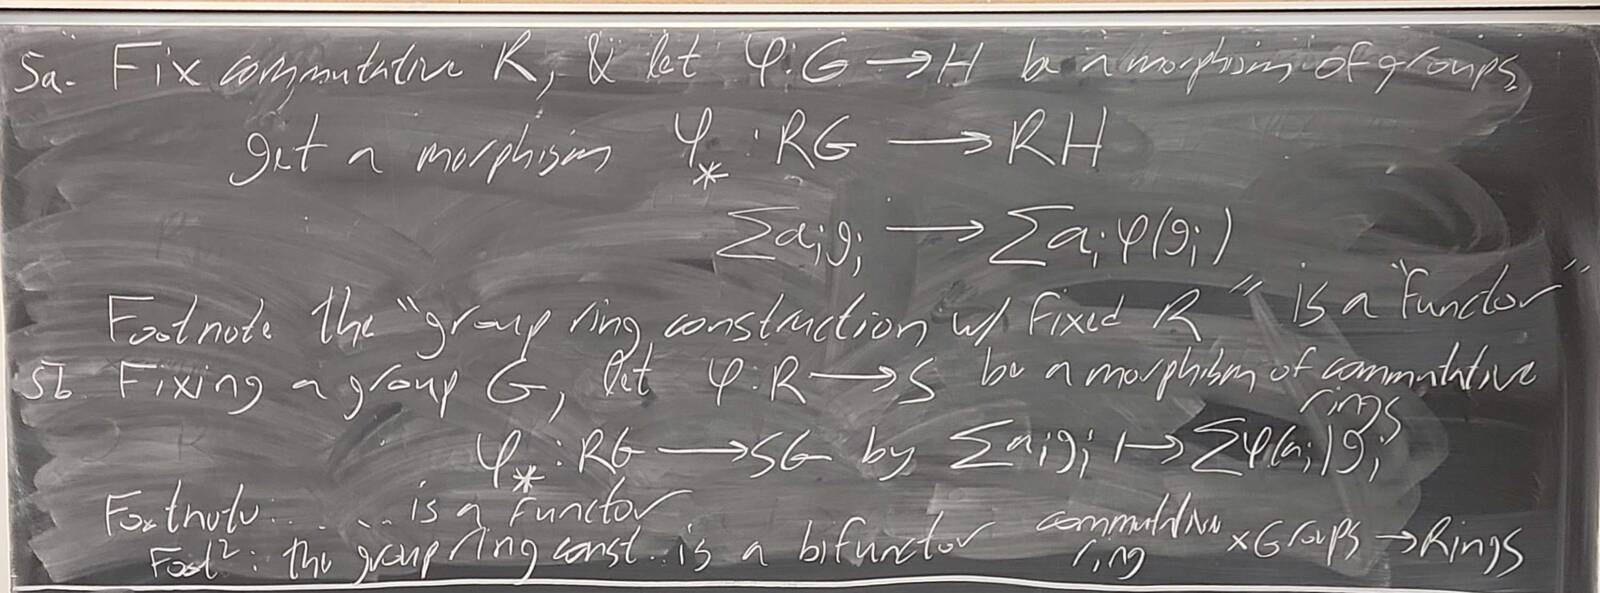 5a. Fix commutative R, & let φ: G → H be a morphism of groups,
get a morphism φ_* : RG → RH
Σ a_i g_i → Σ a_i φ(g_i)
Footnote the "group ring construction w/ fixed R" is a "functor"
5b. Fixing a group G, let φ: R → S be a morphism of commutative
rings
φ_* : RG → SG by Σ a_i g_i ↦ Σ φ(a_i) g_i
Footnote ... ... is a functor
Foot²: the group ring const. is a bifunctor commutative ring × Groups → Rings